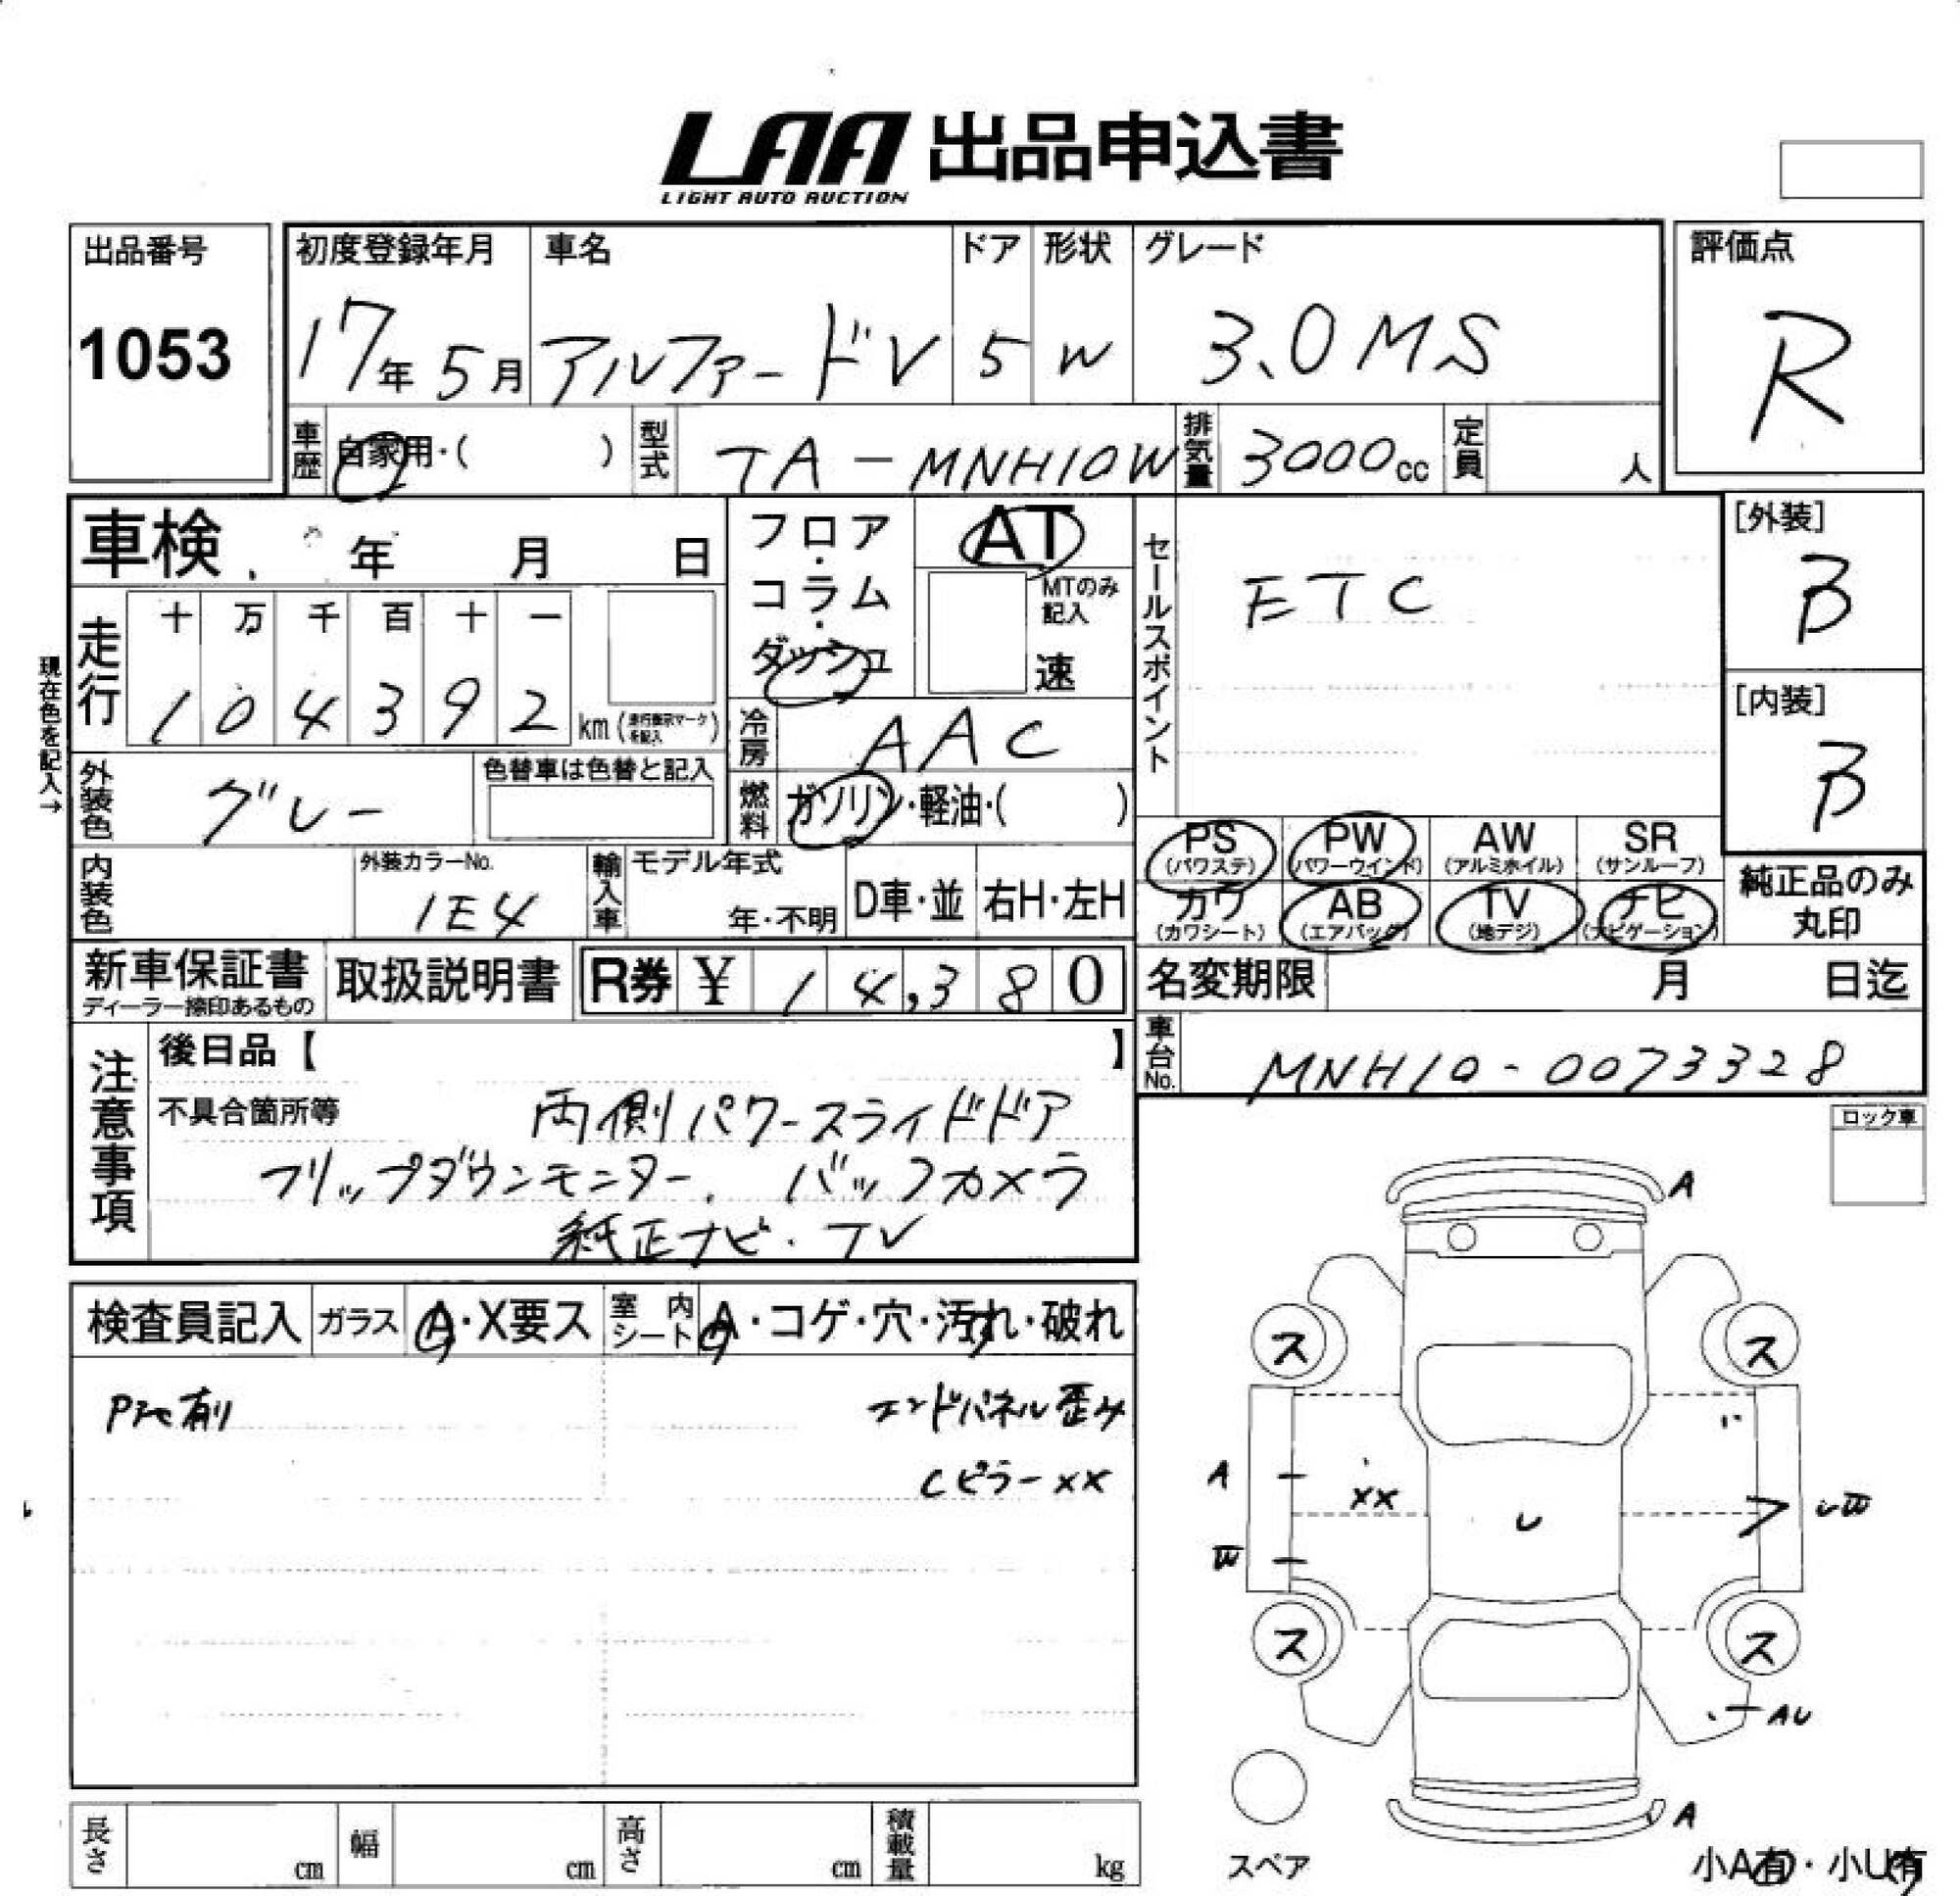 LAA 出品申込書
LIGHT AUTO AUCTION
出品番号 初度登録年月 車名 ドア 形状 グレード 評価点
1053 17年 5月 アルファードV 5 W 3.0MS R
車歴 自家用・( ) 型式 TA-MNH10W 排気量 3000cc 定員 人
車検 年 月 日 フロア・コラム・ダッシュ AT セールスポイント [外装]
MTのみ記入 速 ETC B
現在色を記入→
走行 十 万 千 百 十 一
1 0 4 3 9 2 km (走行表示マークを記入) 冷房 AAC [内装]
B
外装色 グレー 色替車は色替と記入 燃料 ガソリン・軽油・( )
PS PW AW SR
(パワステ) (パワーウインド) (アルミホイル) (サンルーフ)
内装色 外装カラーNo. 1E4 輸入車 モデル年式 年・不明 D車・並 右H・左H
カワ AB TV ナビ 純正品のみ
(カワシート) (エアバッグ) (地デジ) (ナビゲーション) 丸印
新車保証書 取扱説明書 R券 ¥ 1 4,3 8 0 名変期限 月 日迄
ディーラー捺印あるもの
注意事項 後日品【 】 車台No. MNH10-0073328
不具合箇所等 両側パワースライドドア ロック車
フリップダウンモニター. バックカメラ
純正ナビ・TV
検査員記入 ガラス A・X要ス 室内シート A・コゲ・穴・汚れ・破れ
エンドパネル歪み
Cピラーxx
A
ス ス
A XX U
W UW
ス ス
AU
A
スペア 小A有・小U有
長さ cm 幅 cm 高さ cm 積載量 kg